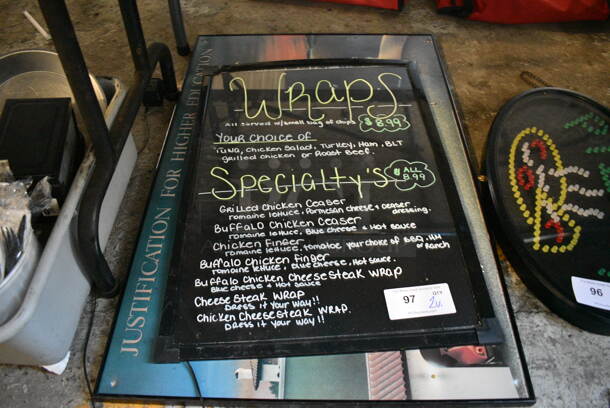 JUSTIFICATION FOR HIGHER EDUCATION
WRaps
all served w/small bag of chips
$8.99
Your choice of
Tuna, chicken Salad, Turkey, Ham, BLT
grilled chicken or Roast Beef.
Specialty's
$ALL
8.99
Grilled Chicken Ceaser
romaine lettuce, Parmesan cheese + ceaser dressing.
Buffalo Chicken Ceaser
romaine lettuce, Blue cheese + Hot sauce
Chicken Finger
romaine lettuce, tomatoe, your choice of BBQ, HM or Ranch
Buffalo Chicken Finger
romaine lettuce, Blue cheese, Hot sauce.
Buffalo Chicken CheeseSteak WRAP
Blue cheese + Hot sauce
Cheese Steak WRAP
DRess it Your way!!
Chicken Cheese Steak WRAP.
DRess it your way!!
97
QTY
2u
96